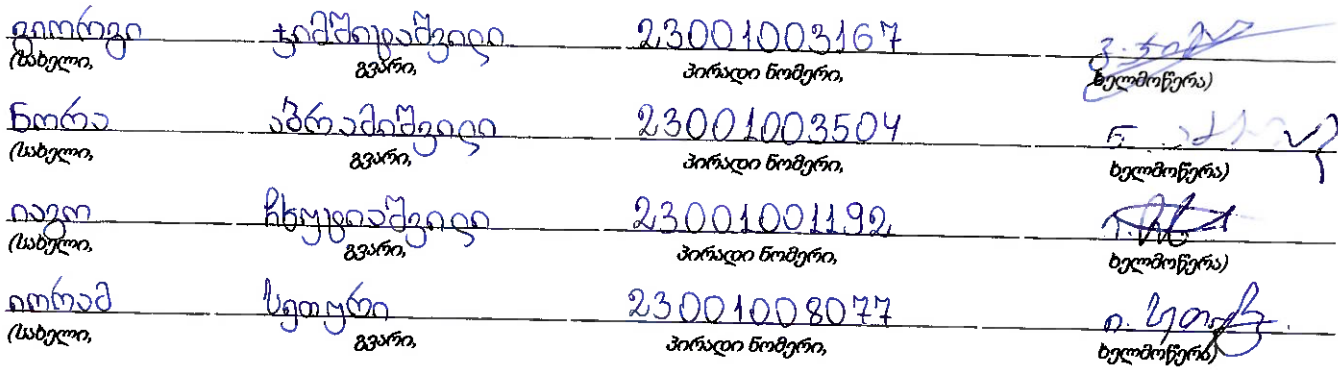 გიორგი ჯიმშიტაშვილი 23001003167 გ. ჯიმ
(სახელი, გვარი, პირადი ნომერი, ხელმოწერა)
ნორა აბრამიშვილი 23001003504 ნ.
(სახელი, გვარი, პირადი ნომერი, ხელმოწერა)
იაგო ჩხუტიაშვილი 23001001192
(სახელი, გვარი, პირადი ნომერი, ხელმოწერა)
იორამ სეთური 23001008077 ი. სეთურ
(სახელი, გვარი, პირადი ნომერი, ხელმოწერა)